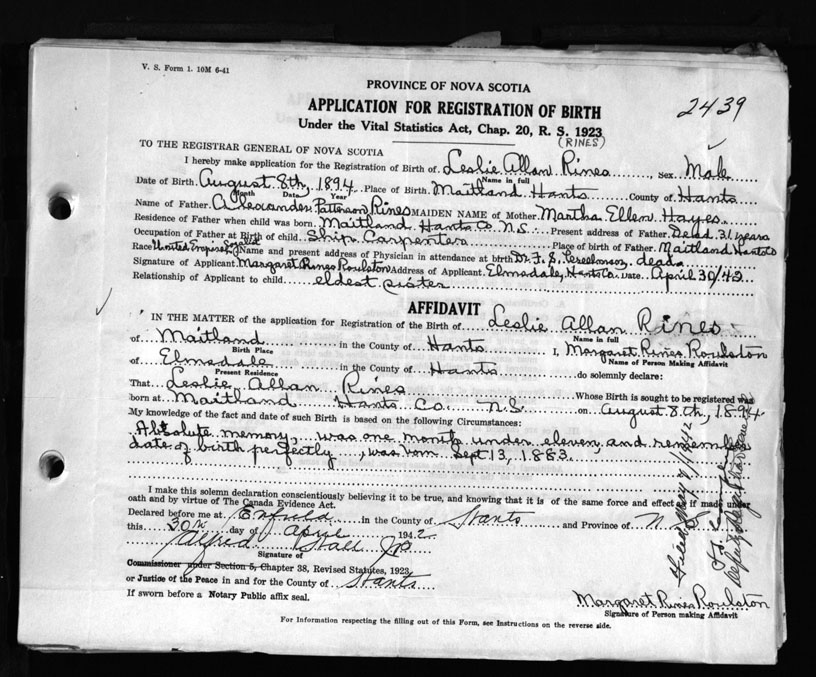 V. S. Form 1. 10M 6-41
PROVINCE OF NOVA SCOTIA
2439
APPLICATION FOR REGISTRATION OF BIRTH
Under the Vital Statistics Act, Chap. 20, R. S. 1923
(RINES)
TO THE REGISTRAR GENERAL OF NOVA SCOTIA
I hereby make application for the Registration of Birth of Leslie Allan Rines, Sex Male
Name in full
Date of Birth August 8th, 1894 Place of Birth Maitland Hants County of Hants
Month Date Year
Name of Father Alexander Patterson Rines MAIDEN NAME of Mother Martha Ellen Hayes
Residence of Father when child was born Maitland Hants Co N.S. Present address of Father Dead 31 years
Occupation of Father at Birth of child Ship Carpenter Place of birth of Father Maitland Hants Co
Race United Empire Loyalist Name and present address of Physician in attendance at birth Dr. F. S. dead
Signature of Applicant Margaret Rines Roulston Address of Applicant Elmsdale, Hants Co. Date April 30/42
Relationship of Applicant to child eldest sister
AFFIDAVIT
IN THE MATTER of the application for Registration of the Birth of Leslie Allan Rines
Name in full
of Maitland in the County of Hants I, Margaret Rines Roulston
Birth Place Name of Person Making Affidavit
of Elmsdale in the County of Hants do solemnly declare:
Present Residence
That Leslie Allan Rines Whose Birth is sought to be registered was
born at Maitland Hants Co. N.S. on August 8th, 1894
My knowledge of the fact and date of such Birth is based on the following Circumstances:
Absolute memory, was one month under eleven, and remember
date of birth perfectly, was born Sept 13, 1883.
I make this solemn declaration conscientiously believing it to be true, and knowing that it is of the same force and effect as if made under
oath and by virtue of The Canada Evidence Act.
Declared before me at Enfield in the County of Hants and Province of N.S.
this 30th day of April 1942
Alfred Hall J.P.
Signature of
Commissioner under Section 5, Chapter 38, Revised Statutes, 1923
or Justice of the Peace in and for the County of Hants
If sworn before a Notary Public affix seal.
Margaret Rines Roulston
Signature of Person making Affidavit
For Information respecting the filling out of this Form, see Instructions on the reverse side.
Filed May
Deputy Registrar General